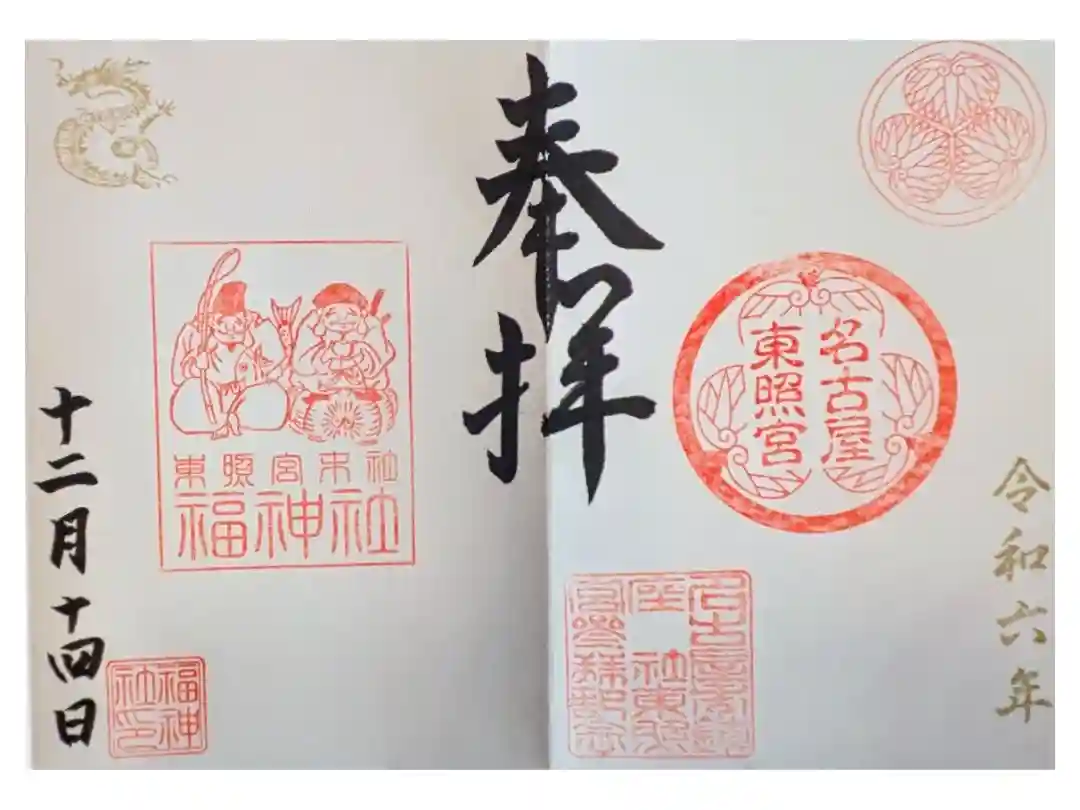 令和六年
名古屋
東照宮
奉拝
東照宮末社
福神社
福神
社印
十二月十四日